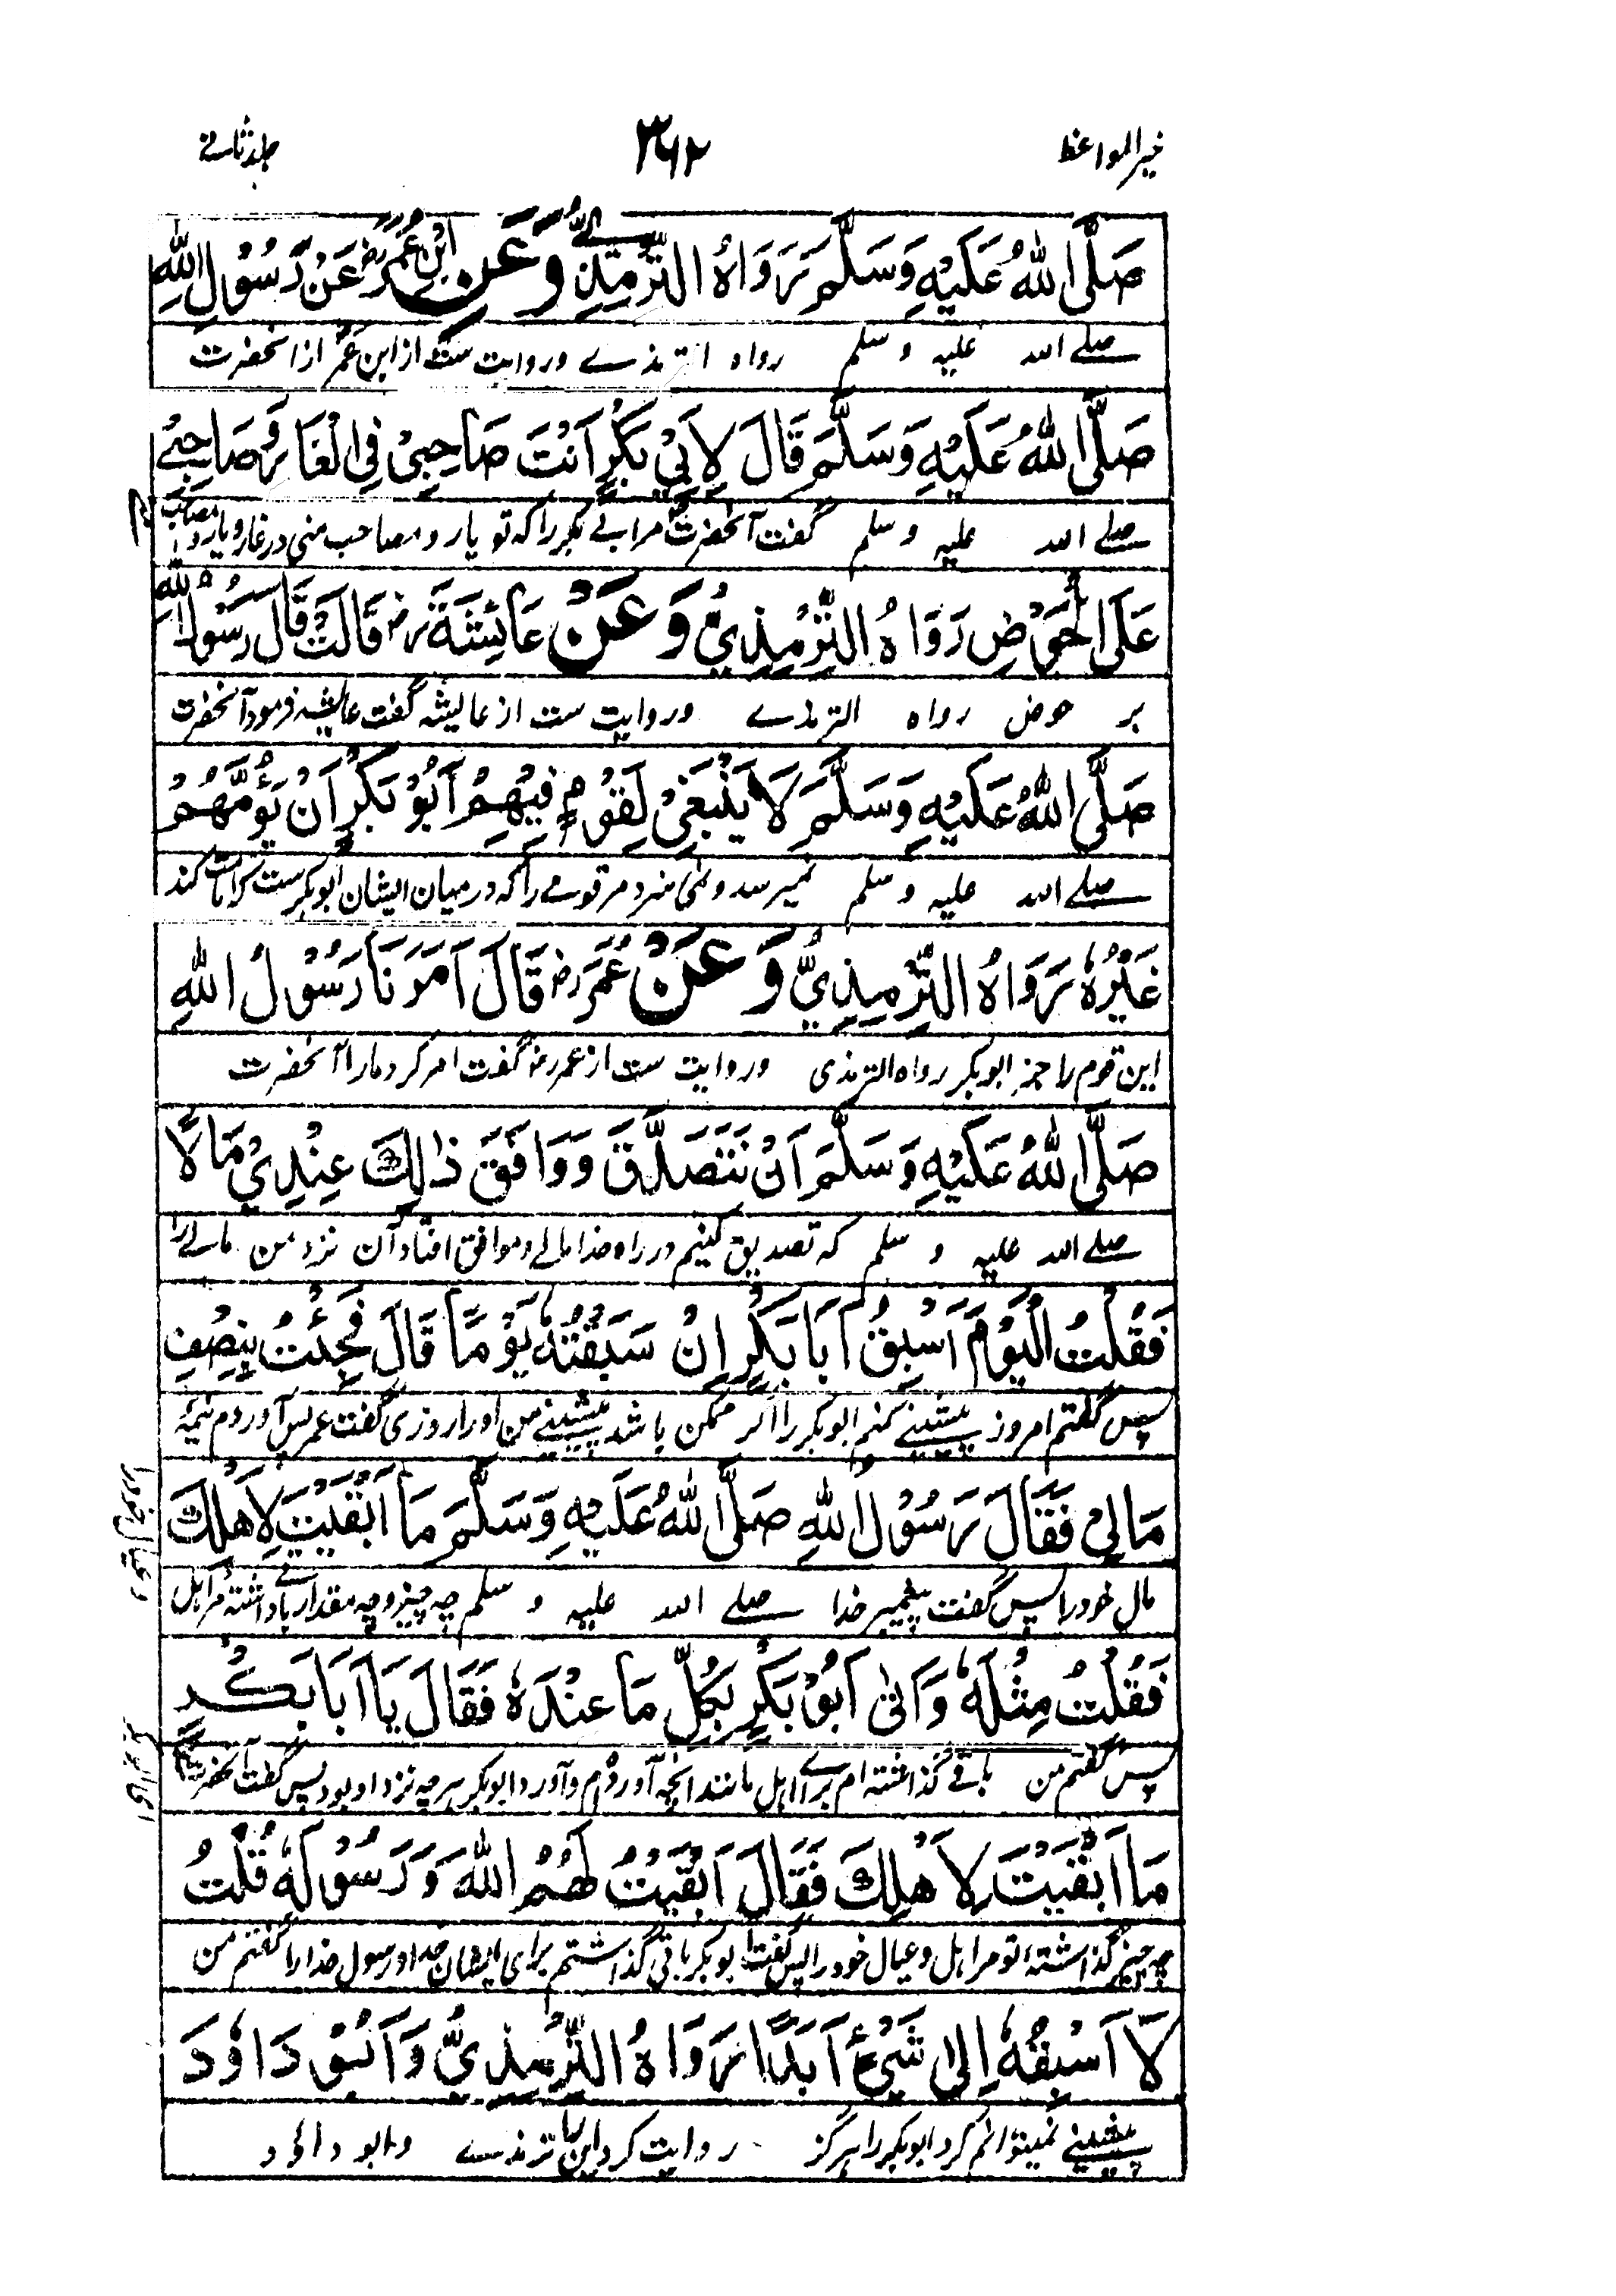 خیر المواعظ ۳۶۲ جلد ثانی
صَلَّی اللهُ عَلَیْهِ وَسَلَّمَ رَوَاهُ التِّرْمِذِیُّ وَعَنِ ابْنِ عُمَرَ رض عَنْ رَسُوْلِ اللهِ
صلے الله علیه و سلم رواه الترمذے و روایت ست از ابن عمر از آنحضرت
صَلَّی اللهُ عَلَیْهِ وَسَلَّمَ قَالَ لِاَبِیْ بَکْرٍ اَنْتَ صَاحِبِیْ فِی الْغَارِ وَصَاحِبِیْ
صلے الله علیه و سلم گفت آنحضرت مر ابی بکر را که تو یار و مصاحب منی در غار و یار و مصاحب
عَلَی الْحَوْضِ رَوَاهُ التِّرْمِذِیُّ وَعَنْ عَائِشَةَ رض قَالَتْ قَالَ رَسُوْلُ اللهِ
بر حوض رواه الترمذے و روایت ست از عایشه گفت عایشه فرمود آنحضرت
صَلَّی اللهُ عَلَیْهِ وَسَلَّمَ لَا یَنْبَغِیْ لِقَوْمٍ فِیْهِمْ اَبُوْ بَکْرٍ اَنْ یَؤُمَّهُمْ
صلے الله علیه و سلم نمیرسد و نمی سزد مر قومے را که در میان ایشان ابوبکر ست که امامت کند
غَیْرُهٗ رَوَاهُ التِّرْمِذِیُّ وَعَنْ عُمَرَ رض قَالَ اَمَرَنَا رَسُوْلُ اللهِ
این قوم را جز ابوبکر رواه الترمذی و روایت ست از عمر رض گفت امر کرد ما را آنحضرت
صَلَّی اللهُ عَلَیْهِ وَسَلَّمَ اَنْ نَتَصَدَّقَ وَوَافَقَ ذٰلِكَ عِنْدِیْ مَالًا
صلے الله علیه و سلم که تصدیق کنیم در راه خدا مالے و موافق افتاد آن نزد من مالے را
فَقُلْتُ الْیَوْمَ اَسْبِقُ اَبَا بَکْرٍ اِنْ سَبَقْتُهٗ یَوْمًا قَالَ فَجِئْتُ بِنِصْفِ
پس گفتم امروز پیشینے کنم ابوبکر را اگر ممکن باشد پیشینے من او را روزی گفت عمر پس آوردم نیمه
مَالِیْ فَقَالَ رَسُوْلُ اللهِ صَلَّی اللهُ عَلَیْهِ وَسَلَّمَ مَا اَبْقَیْتَ لِاَهْلِكَ
مال خود را پس گفت پیغمبر خدا صلے الله علیه و سلم چه چیز و چه مقدار باقی داشتهٔ مر اهل
فَقُلْتُ مِثْلَهٗ وَاَتٰی اَبُوْ بَکْرٍ بِکُلِّ مَا عِنْدَهٗ فَقَالَ یَا اَبَا بَکْرٍ
پس گفتم من باقے گذاشته ام برائے اهل مانند آنچه آورده ام و آورد ابوبکر هر چه نزد او بود پس گفت آنحضرت
مَا اَبْقَیْتَ لِاَهْلِكَ فَقَالَ اَبْقَیْتُ لَهُمُ اللهَ وَرَسُوْلَهٗ قُلْتُ
چه چیز گذاشتهٔ تو مر اهل و عیال خود را پس گفت ابوبکر باقی گذاشتم برای ایشان خدا و رسول خدا را گفتم من
لَا اَسْبِقُهٗ اِلٰی شَیْءٍ اَبَدًا رَوَاهُ التِّرْمِذِیُّ وَاَبُوْ دَاوٗدَ
پیشینے نمیتوانم کرد ابوبکر را هرگز روایت کرد این را ترمذے و ابو داؤد